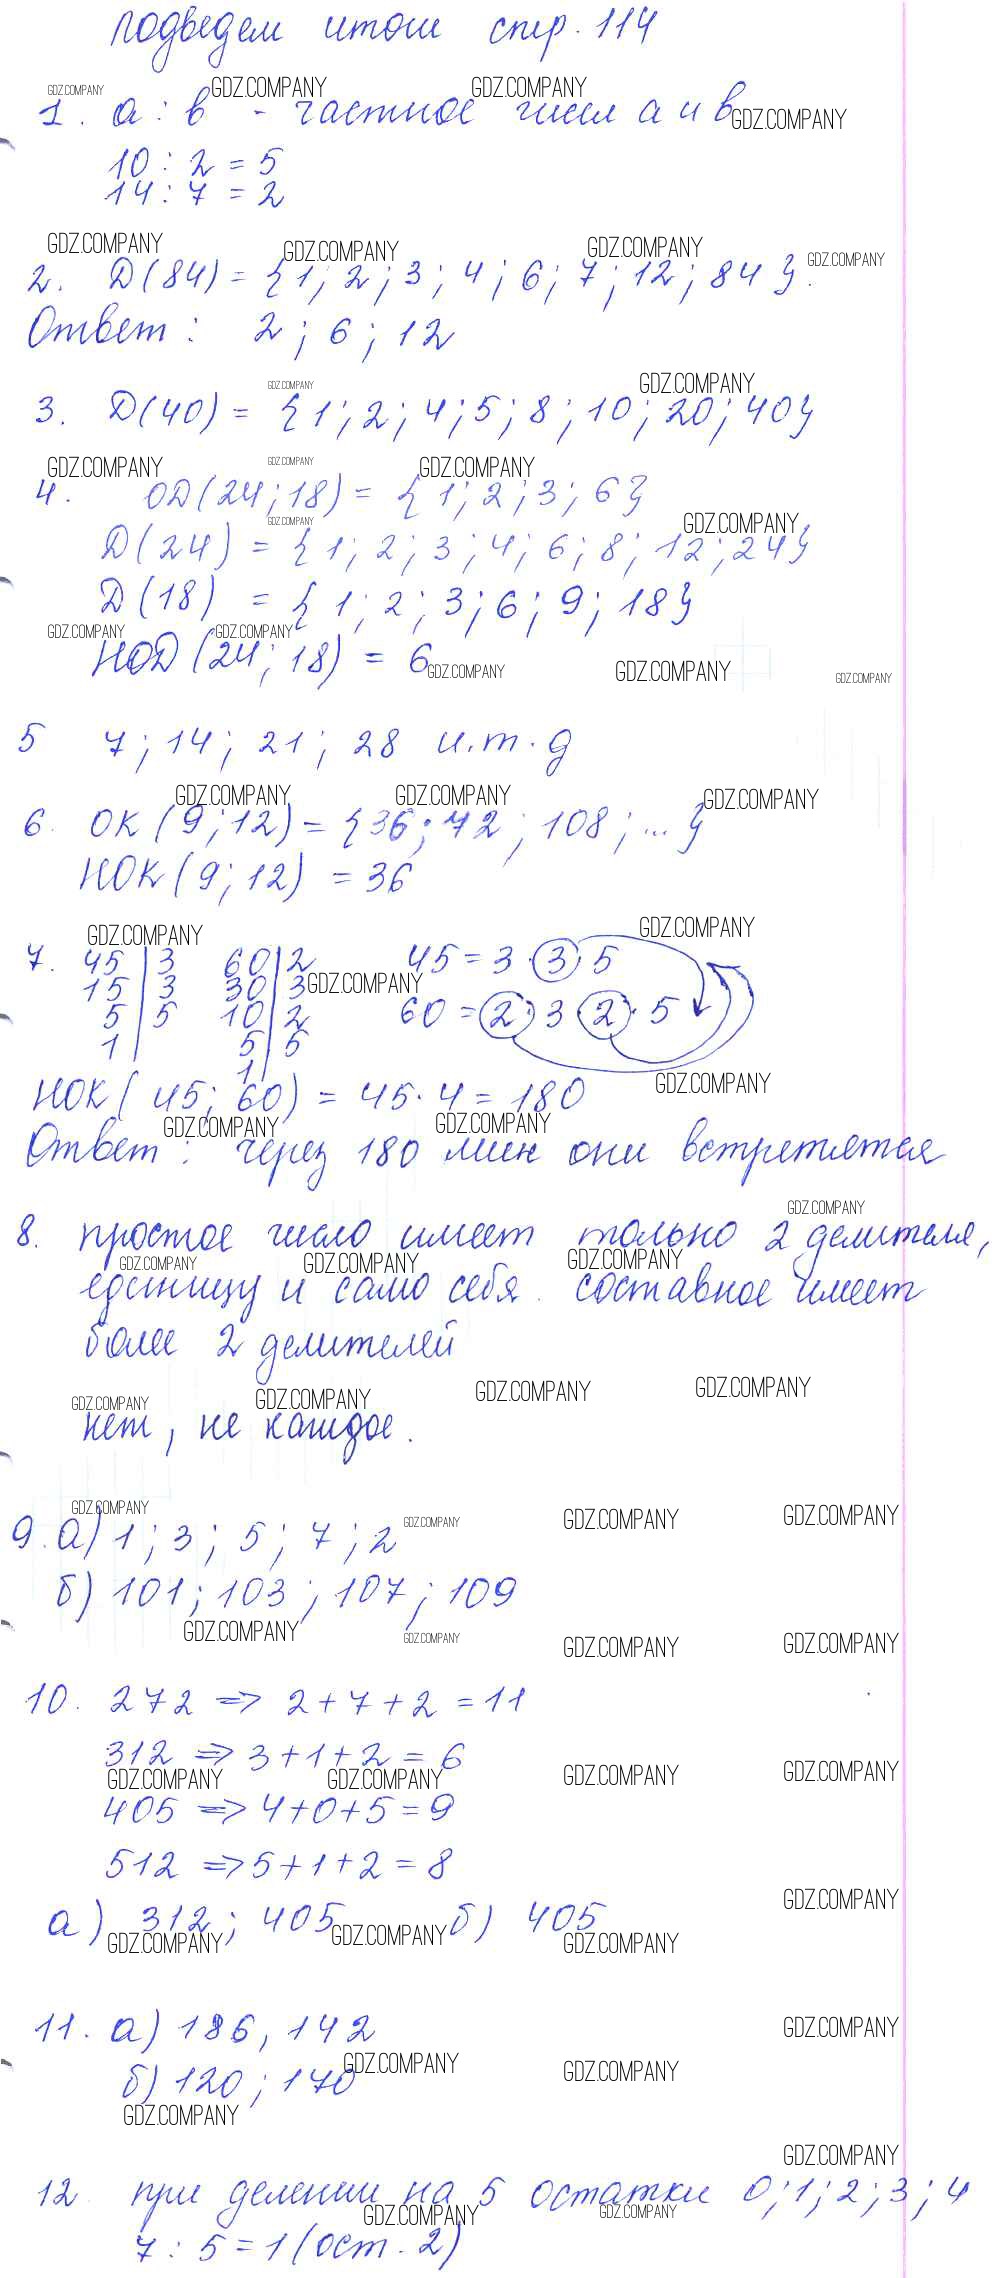 подведем итоги стр. 114
GDZ.COMPANY GDZ.COMPANY GDZ.COMPANY
1. а : в - частное чисел а и в GDZ.COMPANY
10 : 2 = 5
14 : 7 = 2
GDZ.COMPANY GDZ.COMPANY GDZ.COMPANY GDZ.COMPANY
2. Д(84) = {1; 2; 3; 4; 6; 7; 12; 84}.
Ответ: 2; 6; 12
GDZ.COMPANY GDZ.COMPANY
3. Д(40) = {1; 2; 4; 5; 8; 10; 20; 40}
GDZ.COMPANY GDZ.COMPANY GDZ.COMPANY
4. ОД(24; 18) = {1; 2; 3; 6}
GDZ.COMPANY GDZ.COMPANY
Д(24) = {1; 2; 3; 4; 6; 8; 12; 24}
Д(18) = {1; 2; 3; 6; 9; 18}
GDZ.COMPANY GDZ.COMPANY
НОД(24; 18) = 6 GDZ.COMPANY GDZ.COMPANY GDZ.COMPANY
5 7; 14; 21; 28 и.т.д
GDZ.COMPANY GDZ.COMPANY GDZ.COMPANY
6. ОК(9; 12) = {36; 72; 108; ...}
НОК(9; 12) = 36
GDZ.COMPANY GDZ.COMPANY
7. 45 | 3 60 | 2 45 = 3 · 3 · 5
15 | 3 30 | 3 GDZ.COMPANY
5 | 5 10 | 2 60 = 2 · 3 · 2 · 5
1 | 5 | 5
1 |
GDZ.COMPANY
НОК(45; 60) = 45 · 4 = 180
GDZ.COMPANY GDZ.COMPANY
Ответ: через 180 мин они встретятся
GDZ.COMPANY
8. простое число имеет только 2 делителя,
GDZ.COMPANY GDZ.COMPANY GDZ.COMPANY
единицу и само себя. составное имеет
более 2 делителей
GDZ.COMPANY GDZ.COMPANY GDZ.COMPANY GDZ.COMPANY
нет, не каждое.
GDZ.COMPANY GDZ.COMPANY GDZ.COMPANY GDZ.COMPANY
9. а) 1; 3; 5; 7; 2
б) 101; 103; 107; 109
GDZ.COMPANY GDZ.COMPANY GDZ.COMPANY GDZ.COMPANY
10. 272 => 2+7+2 = 11
312 => 3+1+2 = 6
GDZ.COMPANY GDZ.COMPANY GDZ.COMPANY GDZ.COMPANY
405 => 4+0+5 = 9
512 => 5+1+2 = 8
GDZ.COMPANY
а) 312; 405 б) 405
GDZ.COMPANY GDZ.COMPANY GDZ.COMPANY
11. а) 186, 142 GDZ.COMPANY
GDZ.COMPANY GDZ.COMPANY
б) 120; 170
GDZ.COMPANY
GDZ.COMPANY
12. при делении на 5 остатки 0; 1; 2; 3; 4
GDZ.COMPANY GDZ.COMPANY
7 : 5 = 1 (ост. 2)